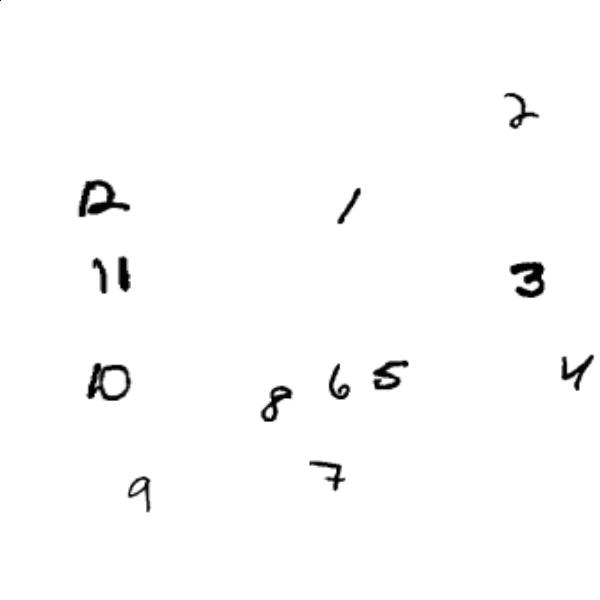 2
12 1
11 3
10 8 6 5 4
9 7